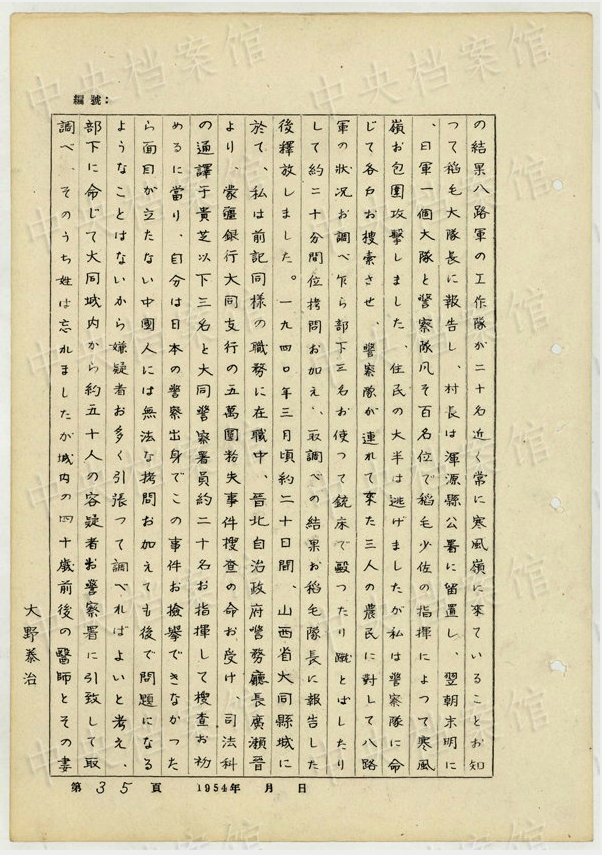 編號：
の結果八路軍の工作隊が二十名近く常に寒風嶺に来ていることお知
つて稻毛大隊長に報告し、村長は渾源縣公署に留置し、翌朝末明に
、日軍一個大隊と警察隊凡そ百名位で稻毛少佐の指揮によつて寒風
嶺お包囲攻撃しました、住民の大半は逃げましたが私は警察隊に命
じて各戸お捜索させ、警察隊が連れて来た三人の農民に対して八路
軍の状况お調べ乍ら部下三名お使つて銃床で殴つたり蹴とばしたり
して約二十分間位拷問お加え、取調べの結果お稻毛隊長に報告した
後釋放しました。一九四〇年三月頃約二十日間、山西省大同縣城に
於て、私は前記同様の職務に在職中、晋北自治政府警務廳長廣瀬晉
より、蒙疆銀行大同支行の五萬圓紛失事件捜查の命お受け、司法科
の通譯于貴芝以下三名と大同警察署員約二十名お指揮して捜查お初
めるに當り、自分は日本の警察出身でこの事件お檢舉できなかつた
ら面目が立たない中國人には無法な拷問お加えても後で問題になる
ようなことはないから嫌疑者お多く引張つて調べればよいと考え、
部下に命じて大同城内から約五十人の容疑者お警察署に引致して取
調べ、そのうち姓は忘れましたが城内の四十歳前後の醫師とその妻
大野泰治
第 35 頁 1954年 月 日
中央档案馆